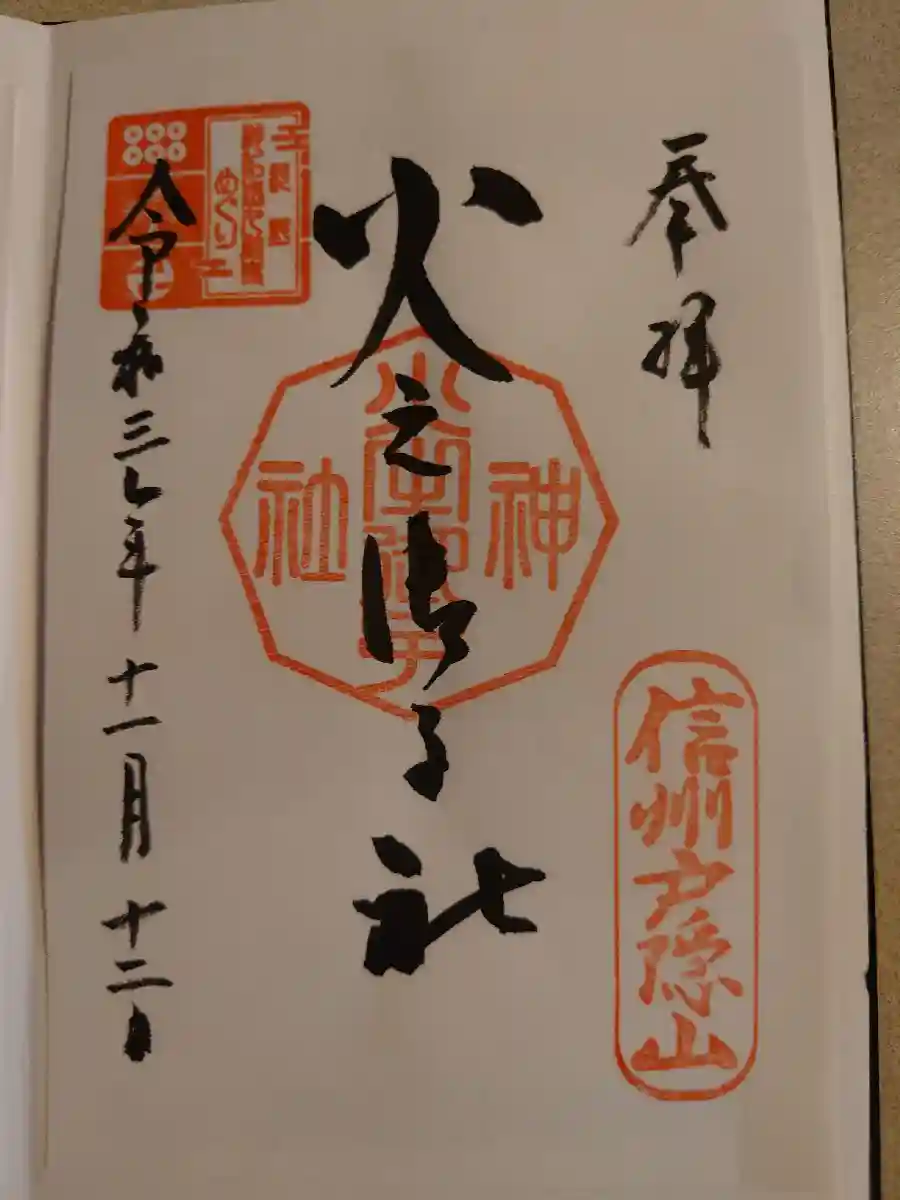 奉拝
信州戸隠山
火之御子社
神
社
令和三年十一月十二日
めぐり